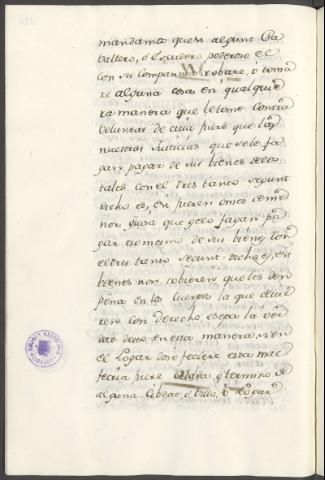 mandamos que si algunt Ca
vallero, ó Escudero poderoso el
con su Compaña robare, ó toma
re alguna cosa en qualquie
ra manera que le tome contra
voluntad de cuia fuere que las
nuestras Justicias que se lo fa
gan pagar de sus bienes de los
tales con el tres tanto segunt
dicho es, è si fueren omes de me
nor guisa que gelo fagan pa
gar eso mesmo de sus bienes con
el tres tanto segunt dicho es, è si
bienes non tobieren que les den
pena en los Cuerpos la que devie
ren con derecho, è sepa la ver
dat desto en esta manera, si en
el Logar do se ficiere esta mal
fetria fuere Aldea, ó termino de
alguna Cibdat, ó Villa, ó Logar